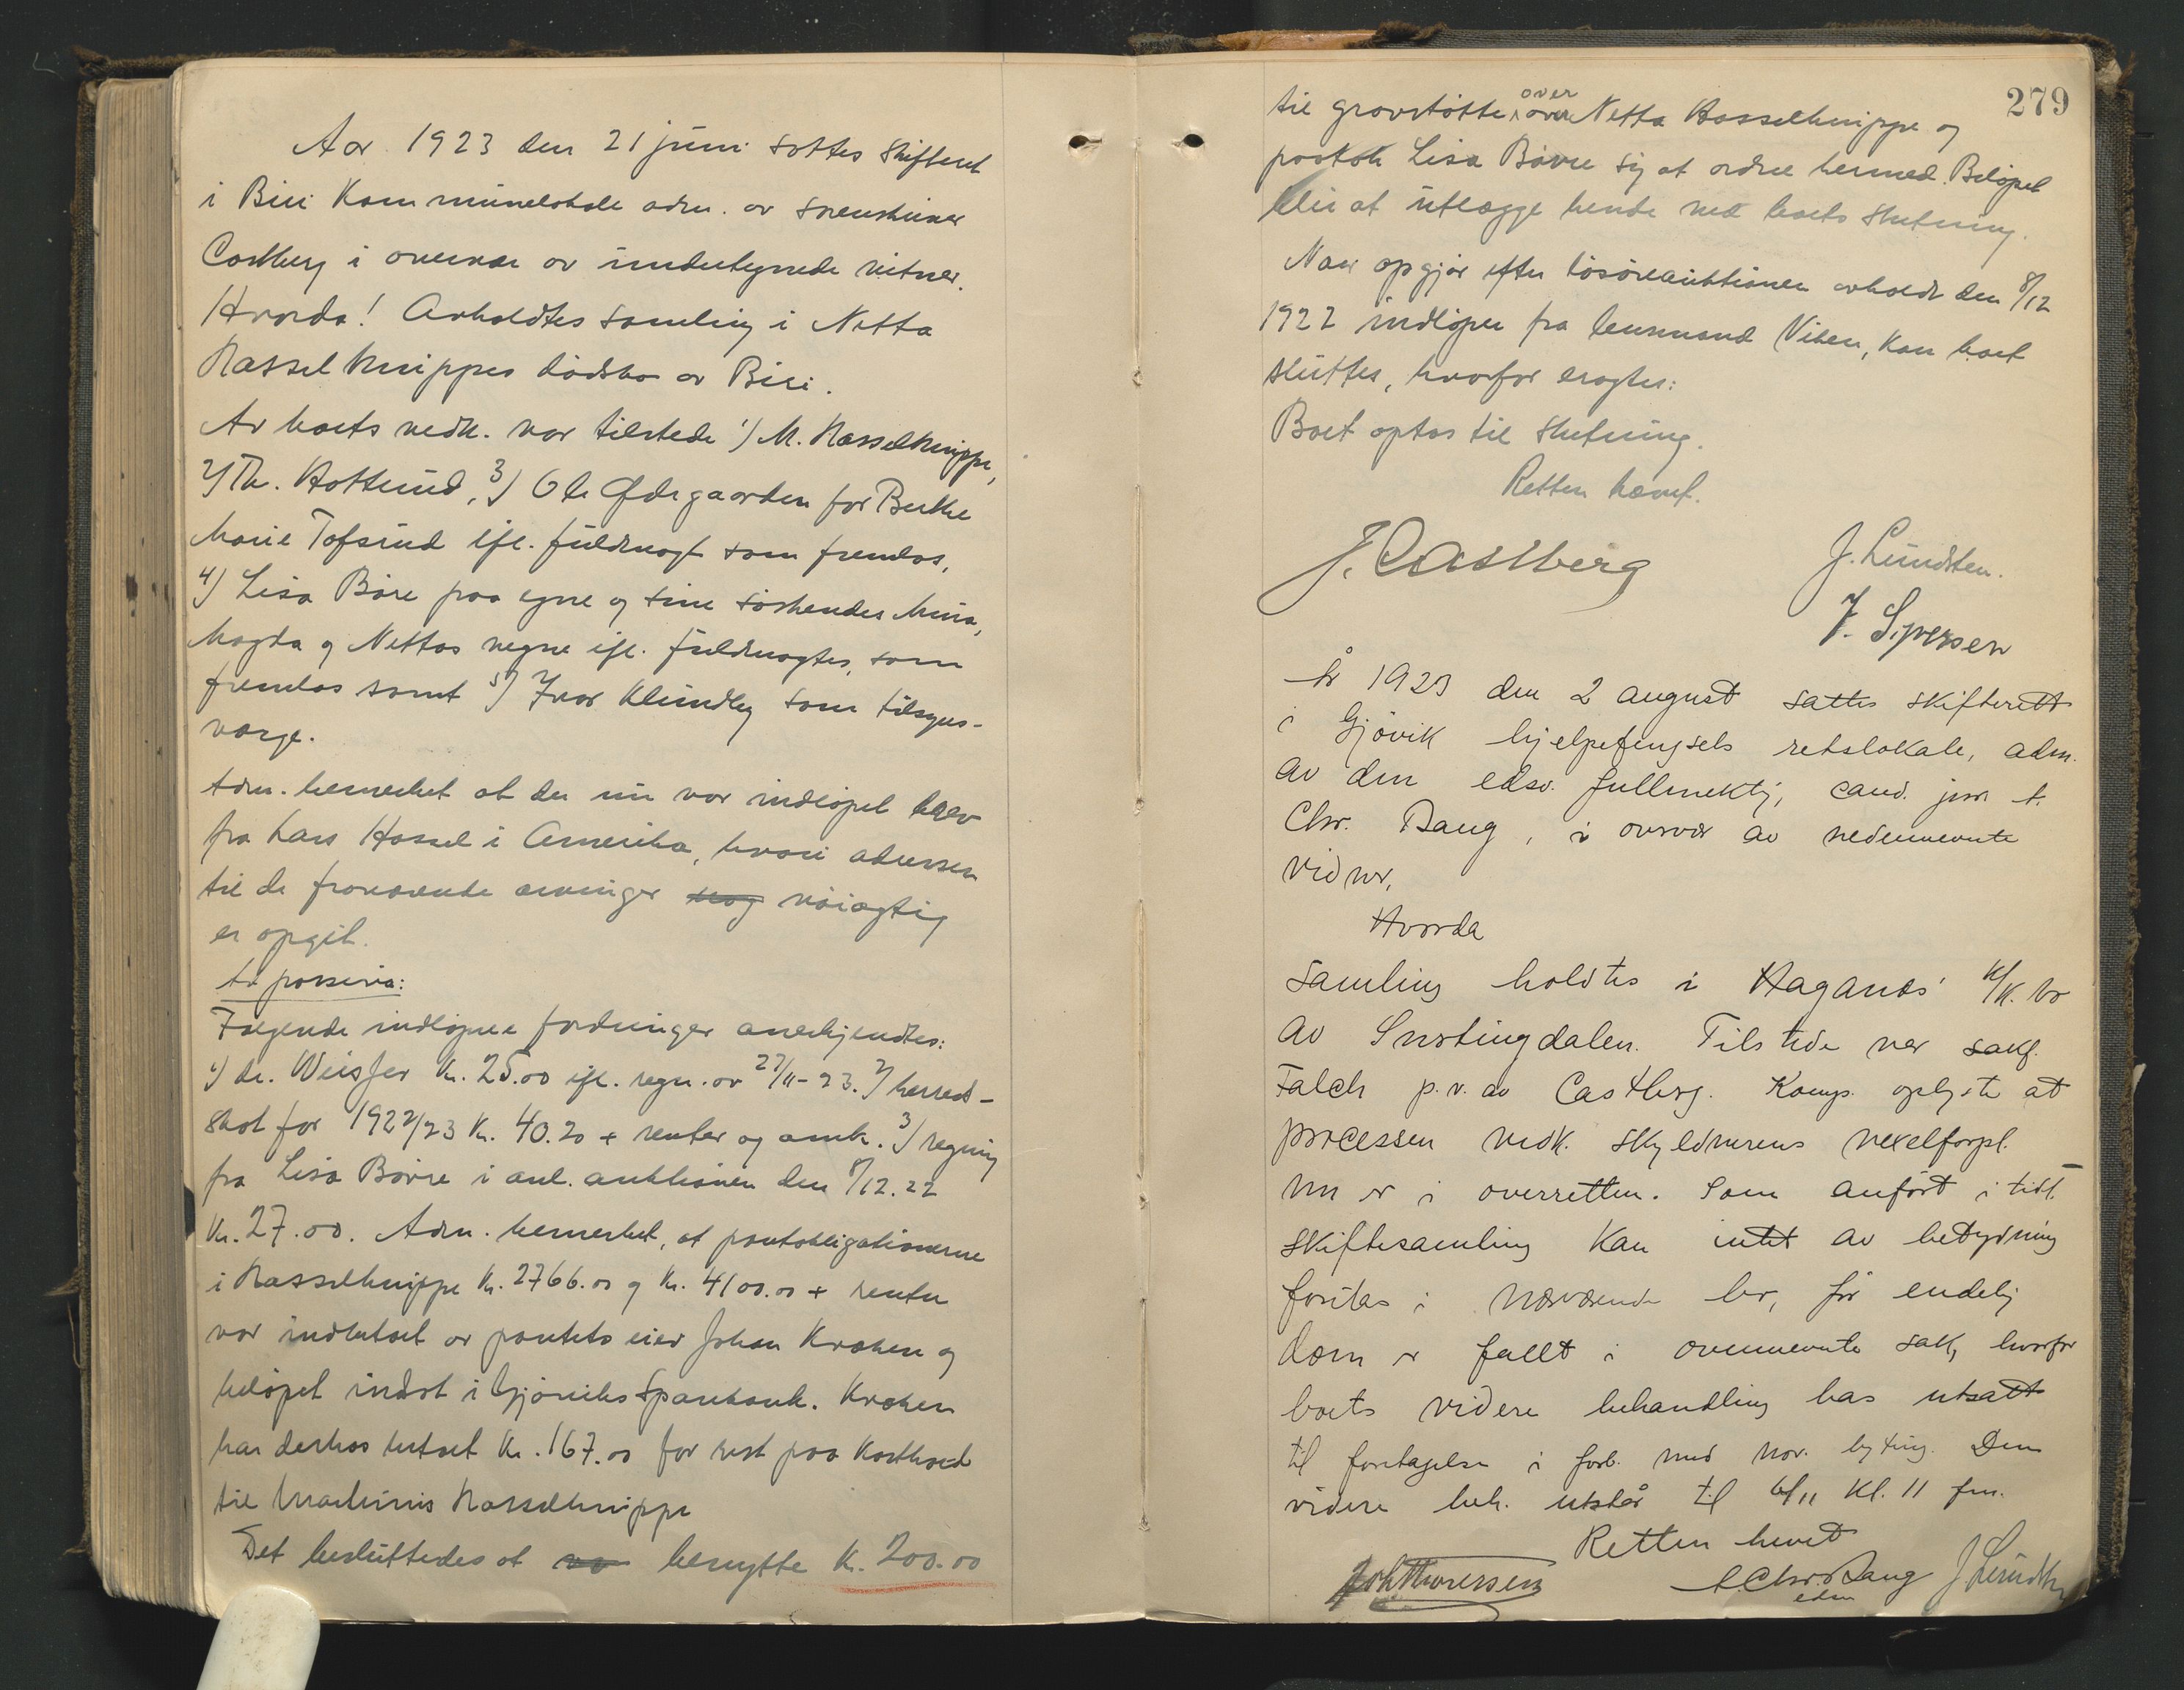 Aar 1923 den 21 juni sattes skifteret
i Biri kommunelokale adm. av sorenskriver
Castberg i overvær av undertegnede vitner.
Hvorda! Avholdtes samling i Netta
Hasselknippes dødsbo av Biri.
Av boets vedk. var tilstede 1) M. Hasselknippe,
2) Th. Hottund, 3) Ole Ødegaarden for Berthe
Marie Tofsrud ifl. fuldmagt som fremlas,
4) Lisa Børe paa egne og sine søskendes Mina,
Magda og Nettas vegne ifl. fuldmagter, som
fremlas samt 5) Ivar Klundby som tilsyns-
værge.
Adm. bemerket at der nu var indløpet brev
fra Lars Hassel i Amerika, hvori adressen
til de fraværende arvinger nøiagtig
er opgit.
Ad passiva:
Følgende indløpne fordringer anerkjendtes:
1) dr. Weisser kr. 25.00 ifl. regn. av 27/11-23. 2) herred-
skat for 1922/23 kr. 40.20 + renter og omk. 3) regning
fra Lisa Børre i anl. auktionen den 8/12.22
kr. 27.00. Adm. bemerket, at pantobligationerne
i Hasselknippe kr. 2766.00 og kr. 4100.00 + renter
var indbetalt av pantets eier Johan Kraken og
beløpet indsat i Gjøviks Sparebank. Kraken
har derhos betalt kr. 167.00 for rest paa kosthold
til Mathinus Hasselknippe
Det besluttedes at benytte kr. 200.00
279
til gravstøtte over Netta Hasselknippe og
paatok Lisa Børre sig at ordne hermed. Beløpet
blir at utlægge hende ved boets slutning.
Naar opgjør efter løsøreauktionen avholdt den 8/12
1922 indløper fra lensmand Viken, kan boet
sluttes, hvorfor eragtes:
Boet optas til slutning.
Retten hævet.
J. Castberg
J. Lundsten.
J. Sipersen
År 1923 den 2 august sattes skifterett
i Gjøvik hjelpefengsels retslokale, adm.
av den edsv. fullmektig, cand. jur A.
Chr. Baug, i overvær av nedennevnte
vidner,
Hvorda
samling holdtes i Haganes k/k. bo
av Snertingdalen. Tilstede var sakf.
Falch p.v. av Castberg. Komp. oplyste at
processen vedk. skyldnerens vexelforpl.
nu er i overretten. Som anført i tidl.
skiftesamling kan intet av betydning
foretas i nærværende bo, før endelig
dom er fallt i ovennevnte sak, hvorfor
boets videre behandling bør utsatt
til foretagelse i forb. med nov. byting. Den
videre beh. utstår til 6/11 kl. 11 fm.
Retten hevet
Joh Thoresen
A. Chr. Baug
edsv
J Lundsten